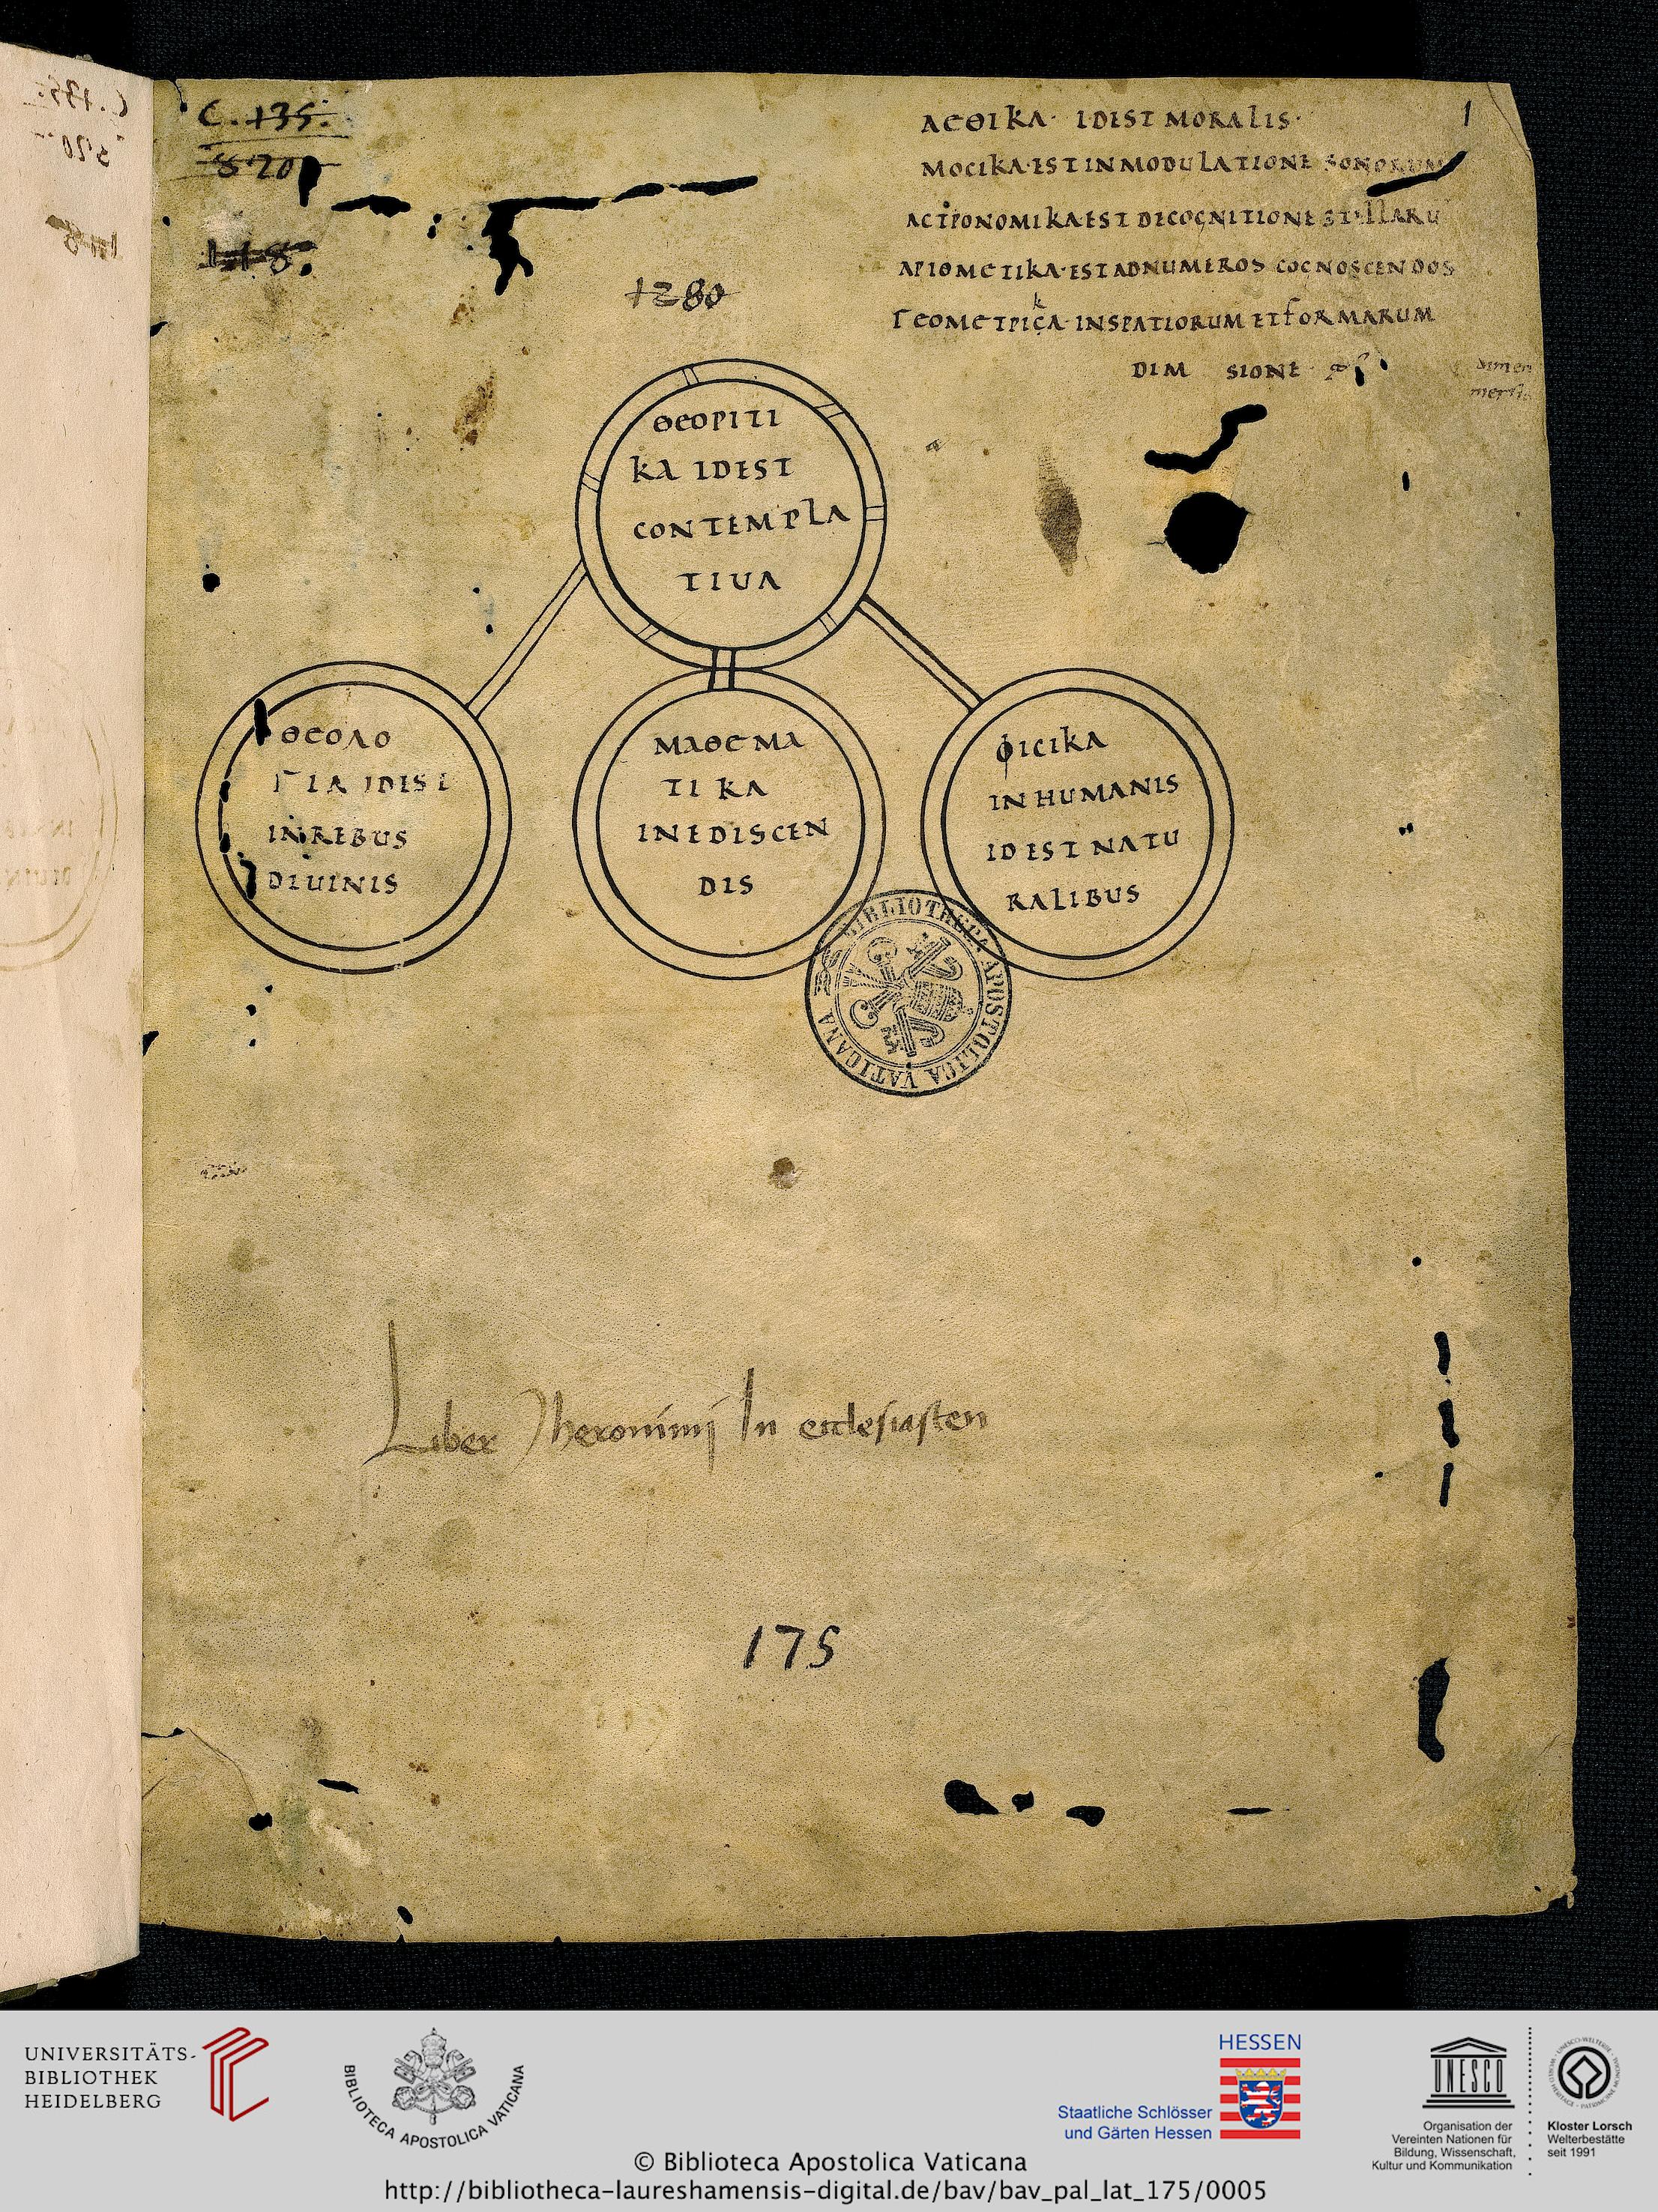 C. 135.
820
118.
1
ΑΕΘΙΚΑ· IDEST MORALIS·
MOCIKA·EST IN MODULATIONE SONORUM
ACTPONOMIKA EST DE COGNITIONE STELLARU
APIΘMETIKA·EST AD NUMEROS COGNOSCENDOS
k
ΓEOMETPICA·IN SPATIORUM ET FORMARUM
DIM SIONE
1280
ΘEOPITI
KA IDEST
CONTEMPLA
TIUA
ΘEOΛO
ΓIA IDEST
IN REBUS
DIUINIS
MAΘEMA
TIKA
IN EDISCEN
DIS
ϕICIKA
IN HUMANIS
IDEST NATU
RALIBUS
BIBLIOTHECA APOSTOLICA VATICANA
Liber Jheronimi In ecclesiasten
175
UNIVERSITÄTS-
BIBLIOTHEK
HEIDELBERG
BIBLIOTECA APOSTOLICA VATICANA
HESSEN
Staatliche Schlösser
und Gärten Hessen
UNESCO
Organisation der
Vereinten Nationen für
Bildung, Wissenschaft,
Kultur und Kommunikation
Kloster Lorsch
Welterbestätte
seit 1991
© Biblioteca Apostolica Vaticana
http://bibliotheca-laureshamensis-digital.de/bav/bav_pal_lat_175/0005